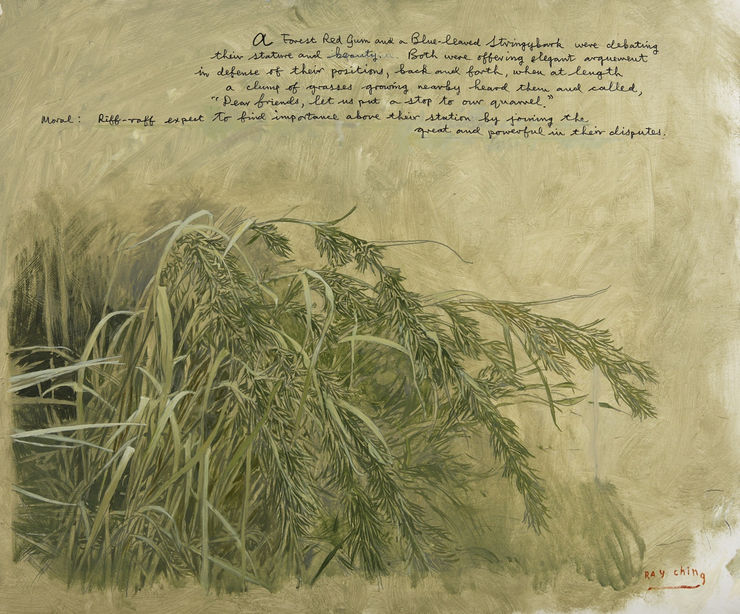 A Forest Red Gum and a Blue-leaved Stringybark were debating
their stature and beauty. Both were offering elegant arguement
in defense of their positions, back and forth, when at length
a clump of grasses growing nearby heard them and called,
"Dear friends, let us put a stop to our quarrel."
Moral: Riff-raff expect to find importance above their station by joining the
great and powerful in their disputes.
RAY Ching